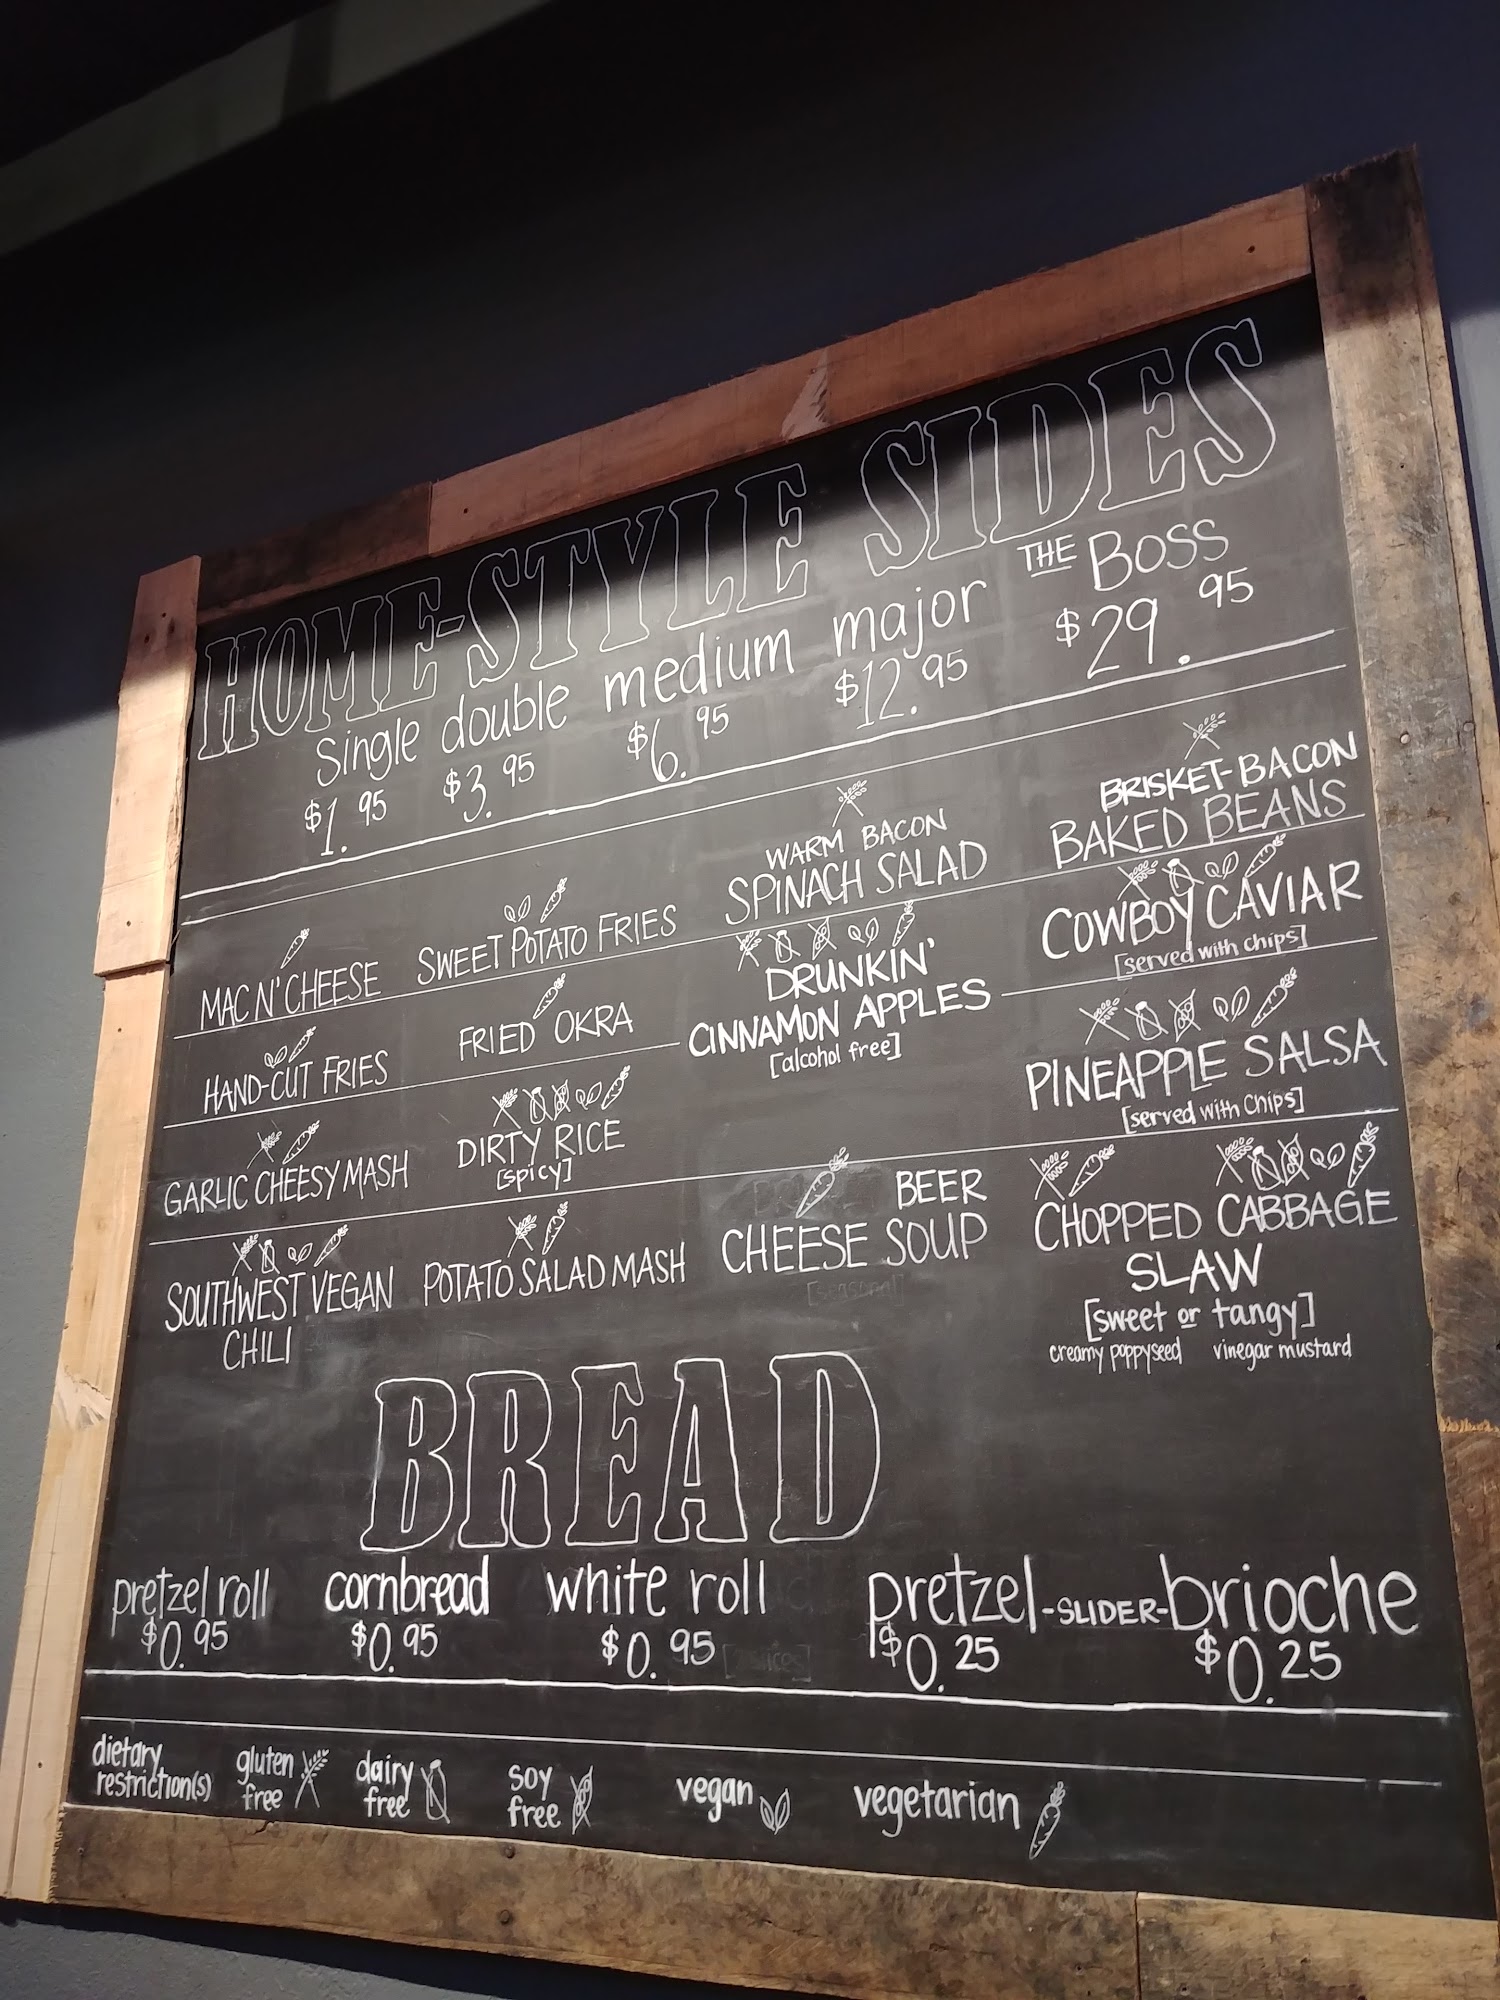 HOME-STYLE SIDES
single double medium major THE BOSS
$1.95 $3.95 $6.95 $12.95 $29.95
MAC N' CHEESE
SWEET POTATO FRIES
WARM BACON
SPINACH SALAD
BRISKET-BACON
BAKED BEANS
HAND-CUT FRIES
FRIED OKRA
DRUNKIN'
CINNAMON APPLES
[alcohol free]
COWBOY CAVIAR
[served with chips]
GARLIC CHEESY MASH
DIRTY RICE
[spicy]
PINEAPPLE SALSA
[served with chips]
SOUTHWEST VEGAN
CHILI
POTATO SALAD MASH
BEER
CHEESE SOUP
[seasonal]
CHOPPED CABBAGE
SLAW
[sweet or tangy]
creamy poppyseed vinegar mustard
BREAD
pretzel roll cornbread white roll pretzel -SLIDER- brioche
$0.95 $0.95 $0.95 $0.25 $0.25
dietary
restriction(s)
gluten
free
dairy
free
soy
free
vegan
vegetarian